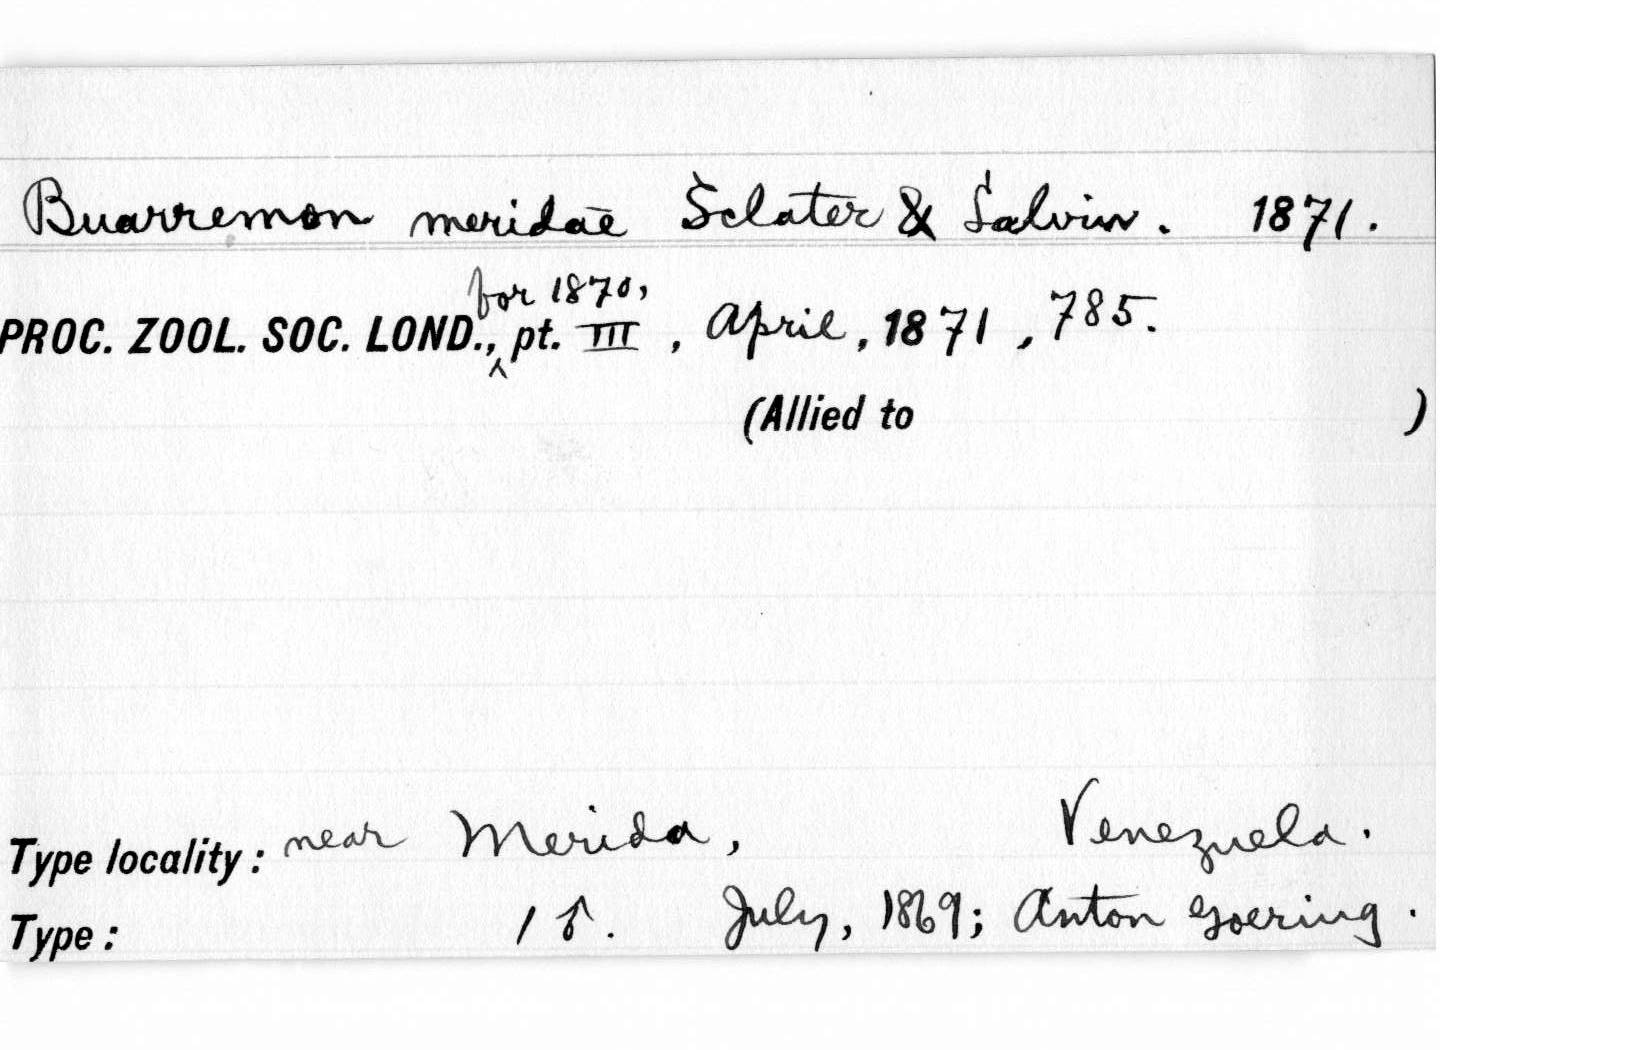 Buarremon meridae Sclater & Salvin. 1871.
for 1870,
PROC. ZOOL. SOC. LOND., pt. III, April, 1871, 785.
(Allied to )
Type locality: near Merida, Venezuela.
Type: 1 ♂. July, 1869; Anton Goering.